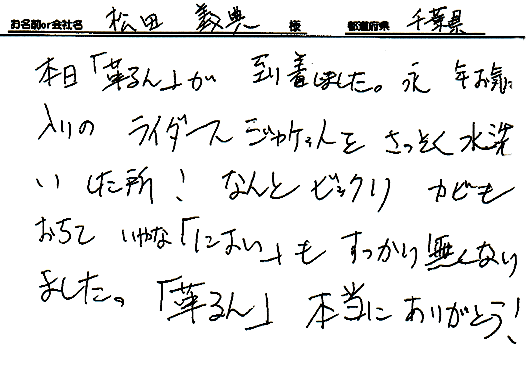 お名前or会社名 松田 義典 様 都道府県 千葉県
本日「革るん」が 到着しました。永年お気に
入りの ライダースジャケットを さっそく水洗
いした所！ なんとビックリ カビも
おちて いやな「におい」も すっかり無くなり
ました。「革るん」本当にありがとう！